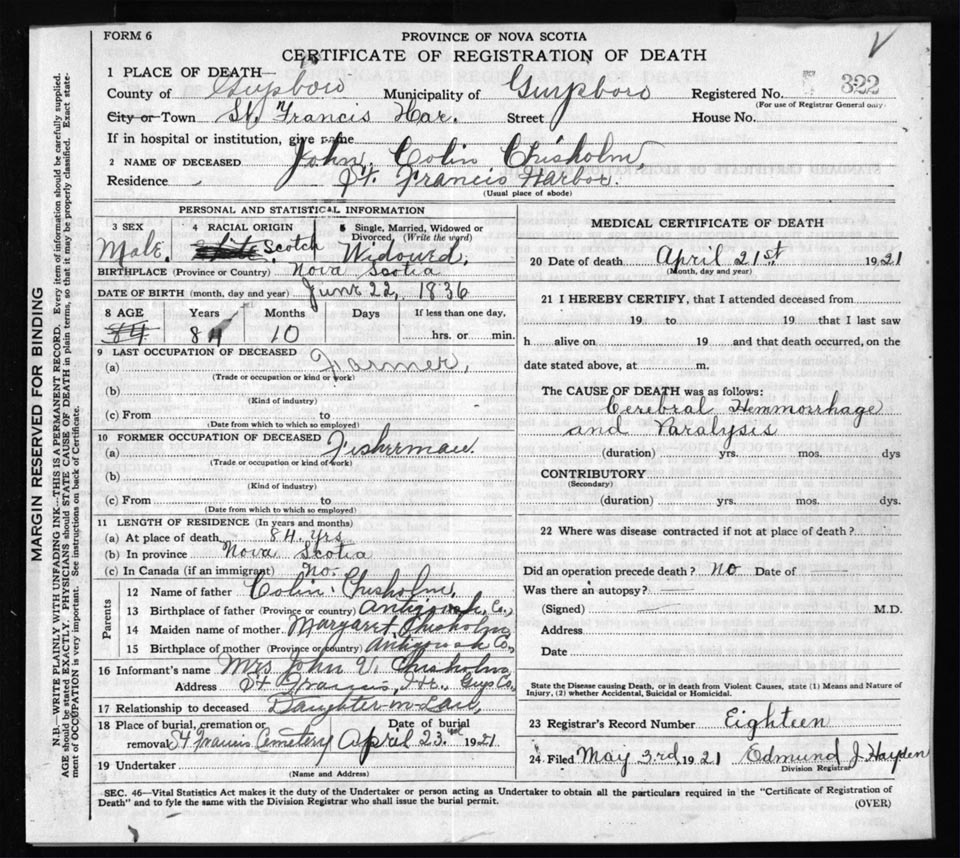 FORM 6
PROVINCE OF NOVA SCOTIA
CERTIFICATE OF REGISTRATION OF DEATH
1 PLACE OF DEATH—
County of Guysboro Municipality of Guysboro Registered No. 322
(For use of Registrar General only)
City or Town St. Francis Har. Street House No.
If in hospital or institution, give name
2 NAME OF DECEASED John Colin Chisholm,
Residence St. Francis Harbor.
(Usual place of abode)
PERSONAL AND STATISTICAL INFORMATION
3 SEX Male.
4 RACIAL ORIGIN White Scotch
5 Single, Married, Widowed or Divorced, (Write the word) Widowed,
BIRTHPLACE (Province or Country) Nova Scotia
DATE OF BIRTH (month, day and year) June 22, 1836
8 AGE Years Months Days If less than one day,
84 84 10 hrs. or min.
9 LAST OCCUPATION OF DECEASED
(a) Farmer,
(Trade or occupation or kind of work)
(b)
(Kind of industry)
(c) From to
(Date from which to which so employed)
10 FORMER OCCUPATION OF DECEASED
(a) Fisherman.
(Trade or occupation or kind of work)
(b)
(Kind of industry)
(c) From to
(Date from which to which so employed)
11 LENGTH OF RESIDENCE (In years and months)
(a) At place of death, 84 Yrs
(b) In province Nova Scotia
(c) In Canada (if an immigrant) No.
Parents
12 Name of father Colin Chisholm,
13 Birthplace of father (Province or country) Antigonish, Co.,
14 Maiden name of mother Margaret Chisholm
15 Birthplace of mother (Province or country) Antigonish Co.,
16 Informant's name Mrs John V. Chisholm,
Address St Francis, Hr., Guys Co.,
17 Relationship to deceased Daughter-in-Law,
18 Place of burial, cremation or removal St Francis Cemetery Date of burial April 23. 1921
19 Undertaker
(Name and Address)
MEDICAL CERTIFICATE OF DEATH
20 Date of death April 21st 1921
(Month, day and year)
21 I HEREBY CERTIFY, that I attended deceased from
19 to 19 that I last saw
h alive on 19 and that death occurred, on the
date stated above, at m.
The CAUSE OF DEATH was as follows:
Cerebral Hemmorrhage
and Paralysis
(duration) yrs. mos. dys
CONTRIBUTORY
(Secondary)
(duration) yrs. mos. dys.
22 Where was disease contracted if not at place of death?
Did an operation precede death? no Date of
Was there an autopsy?
(Signed) M.D.
Address
Date
State the Disease causing Death, or in death from Violent Causes, state (1) Means and Nature of
Injury, (2) whether Accidental, Suicidal or Homicidal.
23 Registrar's Record Number Eighteen
24 Filed May 3rd 1921 Edmund J Hayden
Division Registrar
SEC. 46—Vital Statistics Act makes it the duty of the Undertaker or person acting as Undertaker to obtain all the particulars required in the "Certificate of Registration of
Death" and to fyle the same with the Division Registrar who shall issue the burial permit.
(OVER)
MARGIN RESERVED FOR BINDING
N.B.—WRITE PLAINLY WITH UNFADING INK—THIS IS A PERMANENT RECORD. Every item of information should be carefully supplied.
AGE should be stated EXACTLY. PHYSICIANS should STATE CAUSE OF DEATH in plain terms, so that it may be properly classified. Exact statement
of OCCUPATION is very important. See instructions on back of Certificate.